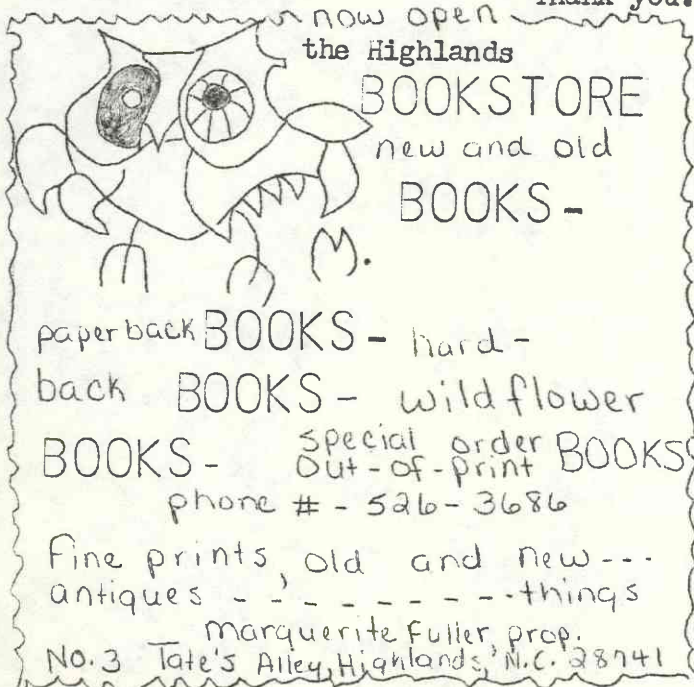 Thank you.
now open
the Highlands
BOOKSTORE
new and old
BOOKS -
M.
paperback BOOKS - hard-
back BOOKS - wildflower
BOOKS - special order
out-of-print BOOKS
phone # - 526-3686
Fine prints, old and new ---
antiques - - - - - - - - things
Marguerite Fuller, prop.
No. 3 Tate's Alley, Highlands, N.C. 28741